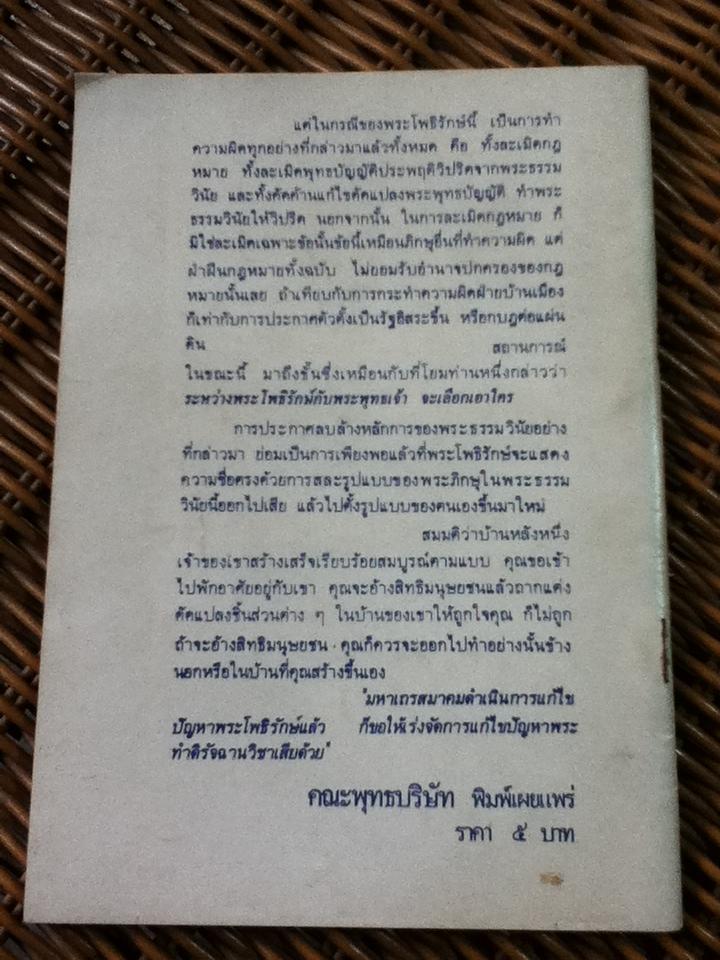 แต่ในกรณีของพระโพธิรักษ์นี้ เป็นการทำ
ความผิดทุกอย่างที่กล่าวมาแล้วทั้งหมด คือ ทั้งละเมิดกฎ
หมาย ทั้งละเมิดพุทธบัญญัติประพฤติวิปริตจากพระธรรม
วินัย และทั้งคัดค้านแก้ไขดัดแปลงพระพุทธบัญญัติ ทำพระ
ธรรมวินัยให้วิปริต นอกจากนั้น ในการละเมิดกฎหมาย ก็
มิใช่ละเมิดเฉพาะข้อนั้นข้อนี้เหมือนภิกษุอื่นที่ทำความผิด แต่
ฝ่าฝืนกฎหมายทั้งฉบับ ไม่ยอมรับอำนาจปกครองของกฎ
หมายนั้นเลย ถ้าเทียบกับการกระทำความผิดฝ่ายบ้านเมือง
ก็เท่ากับการประกาศตัวตั้งเป็นรัฐอิสระขึ้น หรือกบฎต่อแผ่น
ดิน
สถานการณ์
ในขณะนี้ มาถึงขั้นซึ่งเหมือนกับที่โยมท่านหนึ่งกล่าวว่า
ระหว่างพระโพธิรักษ์กับพระพุทธเจ้า จะเลือกเอาใคร
การประกาศลบล้างหลักการของพระธรรมวินัยอย่าง
ที่กล่าวมา ย่อมเป็นการเพียงพอแล้วที่พระโพธิรักษ์จะแสดง
ความซื่อตรงด้วยการสละรูปแบบของพระภิกษุในพระธรรม
วินัยนี้ออกไปเสีย แล้วไปตั้งรูปแบบของตนเองขึ้นมาใหม่
สมมติว่าบ้านหลังหนึ่ง
เจ้าของเขาสร้างเสร็จเรียบร้อยสมบูรณ์ตามแบบ คุณขอเข้า
ไปพักอาศัยอยู่กับเขา คุณจะอ้างสิทธิมนุษยชนแล้วถากแต่ง
ดัดแปลงชิ้นส่วนต่าง ๆ ในบ้านของเขาให้ถูกใจคุณ ก็ไม่ถูก
ถ้าจะอ้างสิทธิมนุษยชน คุณก็ควรจะออกไปทำอย่างนั้นข้าง
นอกหรือในบ้านที่คุณสร้างขึ้นเอง
"มหาเถรสมาคมดำเนินการแก้ไข
ปัญหาพระโพธิรักษ์แล้ว ก็ขอให้เร่งจัดการแก้ไขปัญหาพระ
ทำดิรัจฉานวิชาเสียด้วย"
คณะพุทธบริษัท พิมพ์เผยแพร่
ราคา ๕ บาท